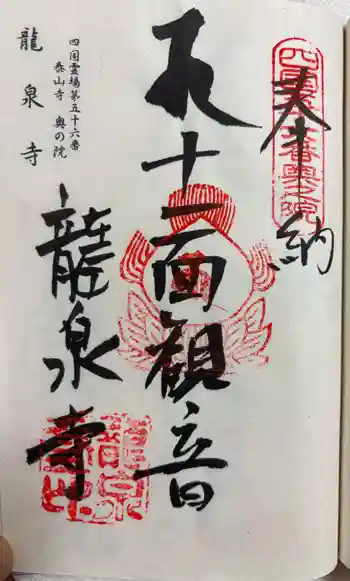 奉納
十一面觀音
龍泉寺
四国霊場第五十六番
泰山寺 奥の院
龍泉寺